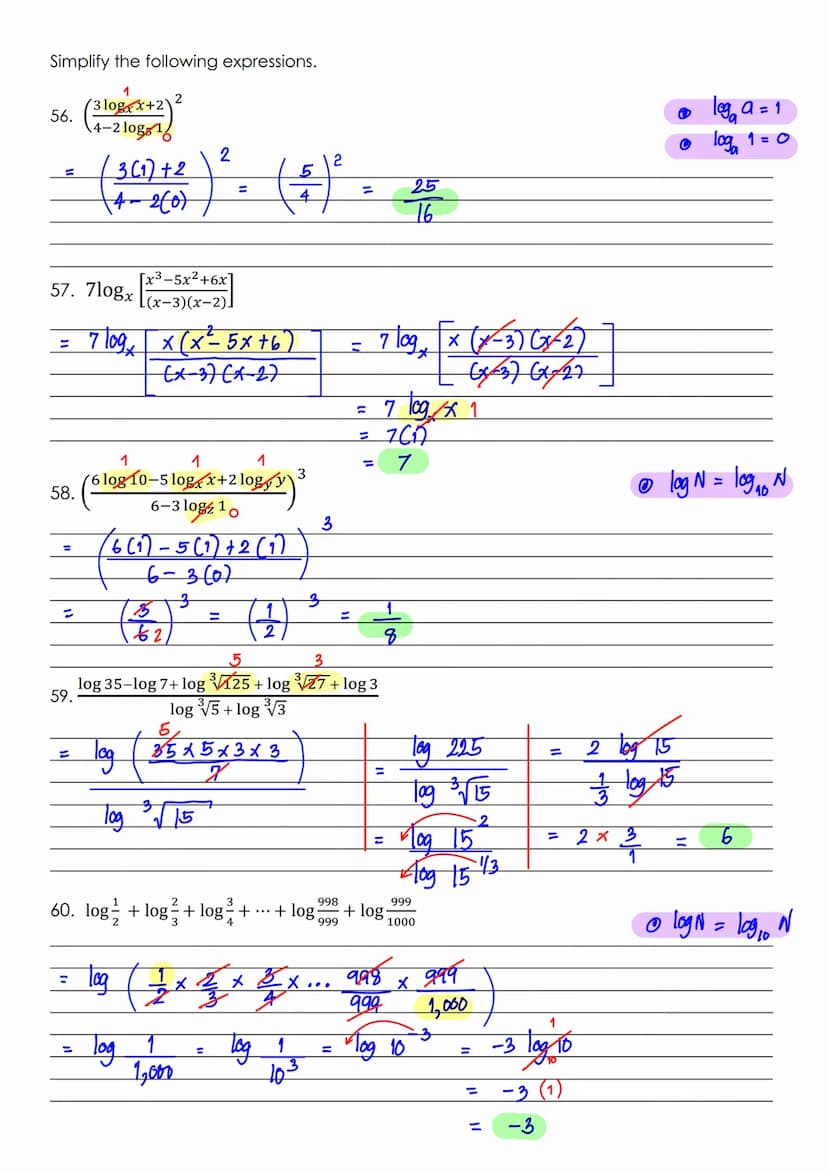 Simplify the following expressions.
56. (3 logₓ x+2 / 4−2 log₅ 1)² 1 0
• logₐ a = 1
• logₐ 1 = 0
= (3(1)+2 / 4−2(0))² = (5/4)² = 25/16
57. 7logₓ [x³−5x²+6x / (x−3)(x−2)]
= 7 logₓ [x(x²−5x+6) / (x−3)(x−2)] = 7 logₓ [x (x−3)(x−2) / (x−3)(x−2)]
= 7 logₓ x 1
= 7(1)
= 7
58. (6 log 10−5 logₓ x+2 log_y y / 6−3 log₂ 1)³ 1 1 1 0
• log N = log₁₀ N
= (6(1)−5(1)+2(1) / 6−3(0))³
= (3/6 2)³ = (1/2)³ = 1/8
59. log 35−log 7+ log ∛125 + log ∛27 + log 3 / log ∛5 + log ∛3 5 3
= log (35×5×3×3 / 7) / log ∛15 5 = log 225 / log ∛15 = 2 log 15 / ⅓ log 15
= log 15² / log 15^1/3 = 2 × 3/1 = 6
60. log 1/2 + log 2/3 + log 3/4 + ⋯ + log 998/999 + log 999/1000
• log N = log₁₀ N
= log (1/2 × 2/3 × 3/4 × ... 998/999 × 999/1,000)
= log 1/1,000 = log 1/10³ = log 10⁻³ = −3 log₁₀ 10 1
= −3 (1)
= −3